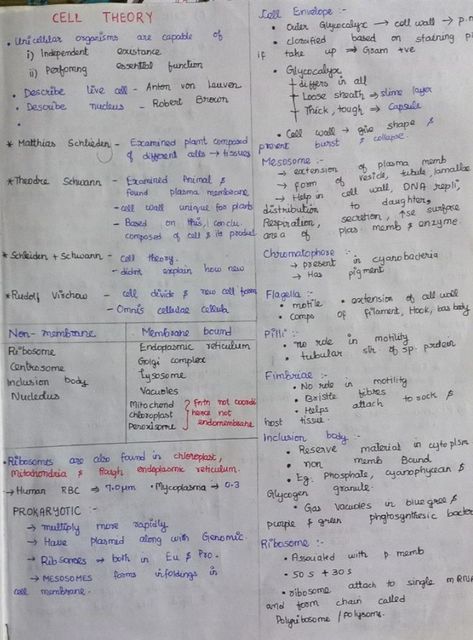 CELL THEORY
• Unicellular organisms are capable of
i) Independent existance
ii) Performing essential function
• Describe live cell - Anton von Leuven
• Describe nucleus - Robert Brown
•
* Matthias Schlieden - Examined plant composed
of different cells → tissues
* Theodre Schwann - Examined Animal &
found plasma membrane
- cell wall unique for plants
- Based on this, conclu.
composed of cell & its product
* Schleiden + Schwann - cell theory.
- didnt explain how new
* Rudolf Virschow - cell divide & new cell form
- Omnis cellulae cellula
Non-membrane
Membrane bound
Ribosome
Centrosome
Inclusion body
Nucleolus
Endoplasmic reticulum
Golgi complex
Lysosome
Vacuoles
Mitochond
Chloroplast
Peroxisome
Fntn not coordi
hence not
endomembrane
• Ribosomes are also found in chloroplast,
Mitochondria & Rough endoplasmic reticulum.
→ Human RBC ⇒ 7.0μm • Mycoplasma → 0.3
PROKARYOTIC :-
→ multiply more rapidly
→ Have plasmed along with Genomic
→ Ribosomes → both in Eu & Pro.
→ MESOSOMES forms infoldings in
cell membrane.
Cell Envelope :-
• Outer Glycocalyx → cell wall → p.m
• classified based on staining
if take up ⇒ Gram +ve
• Glycocalyx
differs in all
Loose sheath → slime layer
Thick, tough → Capsule
• Cell wall → give shape &
prevent burst & collapse.
Mesosome :-
→ extension of plasma memb
→ form of vesicle, tubule, lamallae
→ Help in cell wall, DNA repli,
distribution to daughter,
Respiration, secretion, ↑se surface
area of plas. memb & enzyme
Chromatophore :-
→ present in cyanobacteria
→ Has pigment
Flagella :-
• motile • extension of cell wall
• Compo of filament, Hook, bas body
Pilli :-
• no role in motility
• tubular str of sp. protein
Fimbriae :-
• No role in motility
• Bristle fibres
• Helps attach to rock &
host tissue.
Inclusion body :-
• Reserve material in cytoplsm
• non memb Bound
• Eg: Phosphate, cyanophycean &
Glycogen granule.
• Gas vacuoles in blue gree &
purple & green photosynthesic bacter
Ribosome :-
• Associated with p memb
• 50s + 30s
• ribosome attach to single mRNA
and form chain called
Polyribosome / polysome.